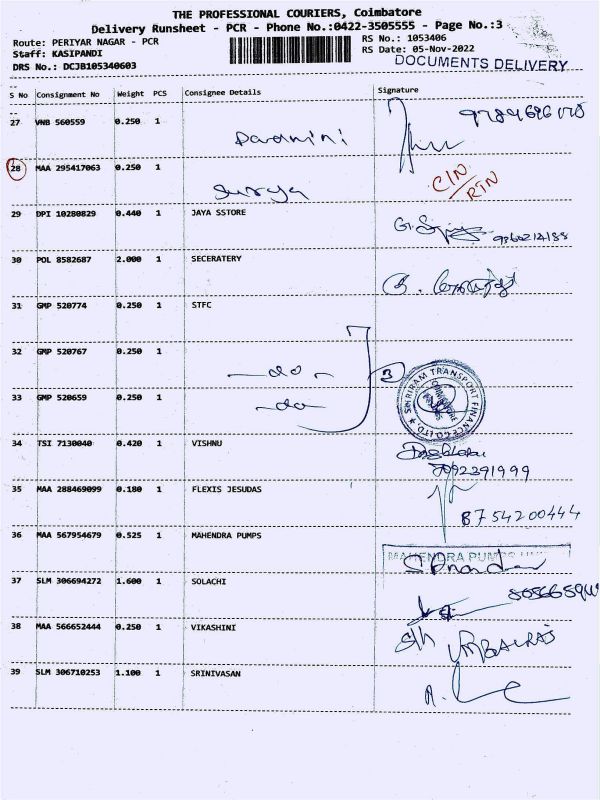 THE PROFESSIONAL COURIERS, Coimbatore
Delivery Runsheet - PCR - Phone No.:0422-3505555 - Page No.:3
Route: PERIYAR NAGAR - PCR
RS No.: 1053406
Staff: KASIPANDI
RS Date: 05-Nov-2022
DRS No.: DCJB105340603
DOCUMENTS DELIVERY
S No Consignment No Weight PCS Consignee Details Signature
27 VNB 560559 0.250 1
Padmini
28 MAA 295417063 0.250 1
Surya
CIN/RTN
29 DPI 10280829 0.440 1 JAYA SSTORE
30 POL 8582687 2.000 1 SECERATERY
31 GMP 520774 0.250 1 STFC
32 GMP 520767 0.250 1
-do-
3
33 GMP 520659 0.250 1
-do-
SHRIRAM TRANSPORT FINANCE CO LTD
34 TSI 7130040 0.420 1 VISHNU
7092391999
35 MAA 288469099 0.180 1 FLEXIS JESUDAS
8754200444
36 MAA 567954679 0.525 1 MAHENDRA PUMPS
MAHENDRA PUMPS
37 SLM 306694272 1.600 1 SOLACHI
38 MAA 566652444 0.250 1 VIKASHINI
39 SLM 306710253 1.100 1 SRINIVASAN